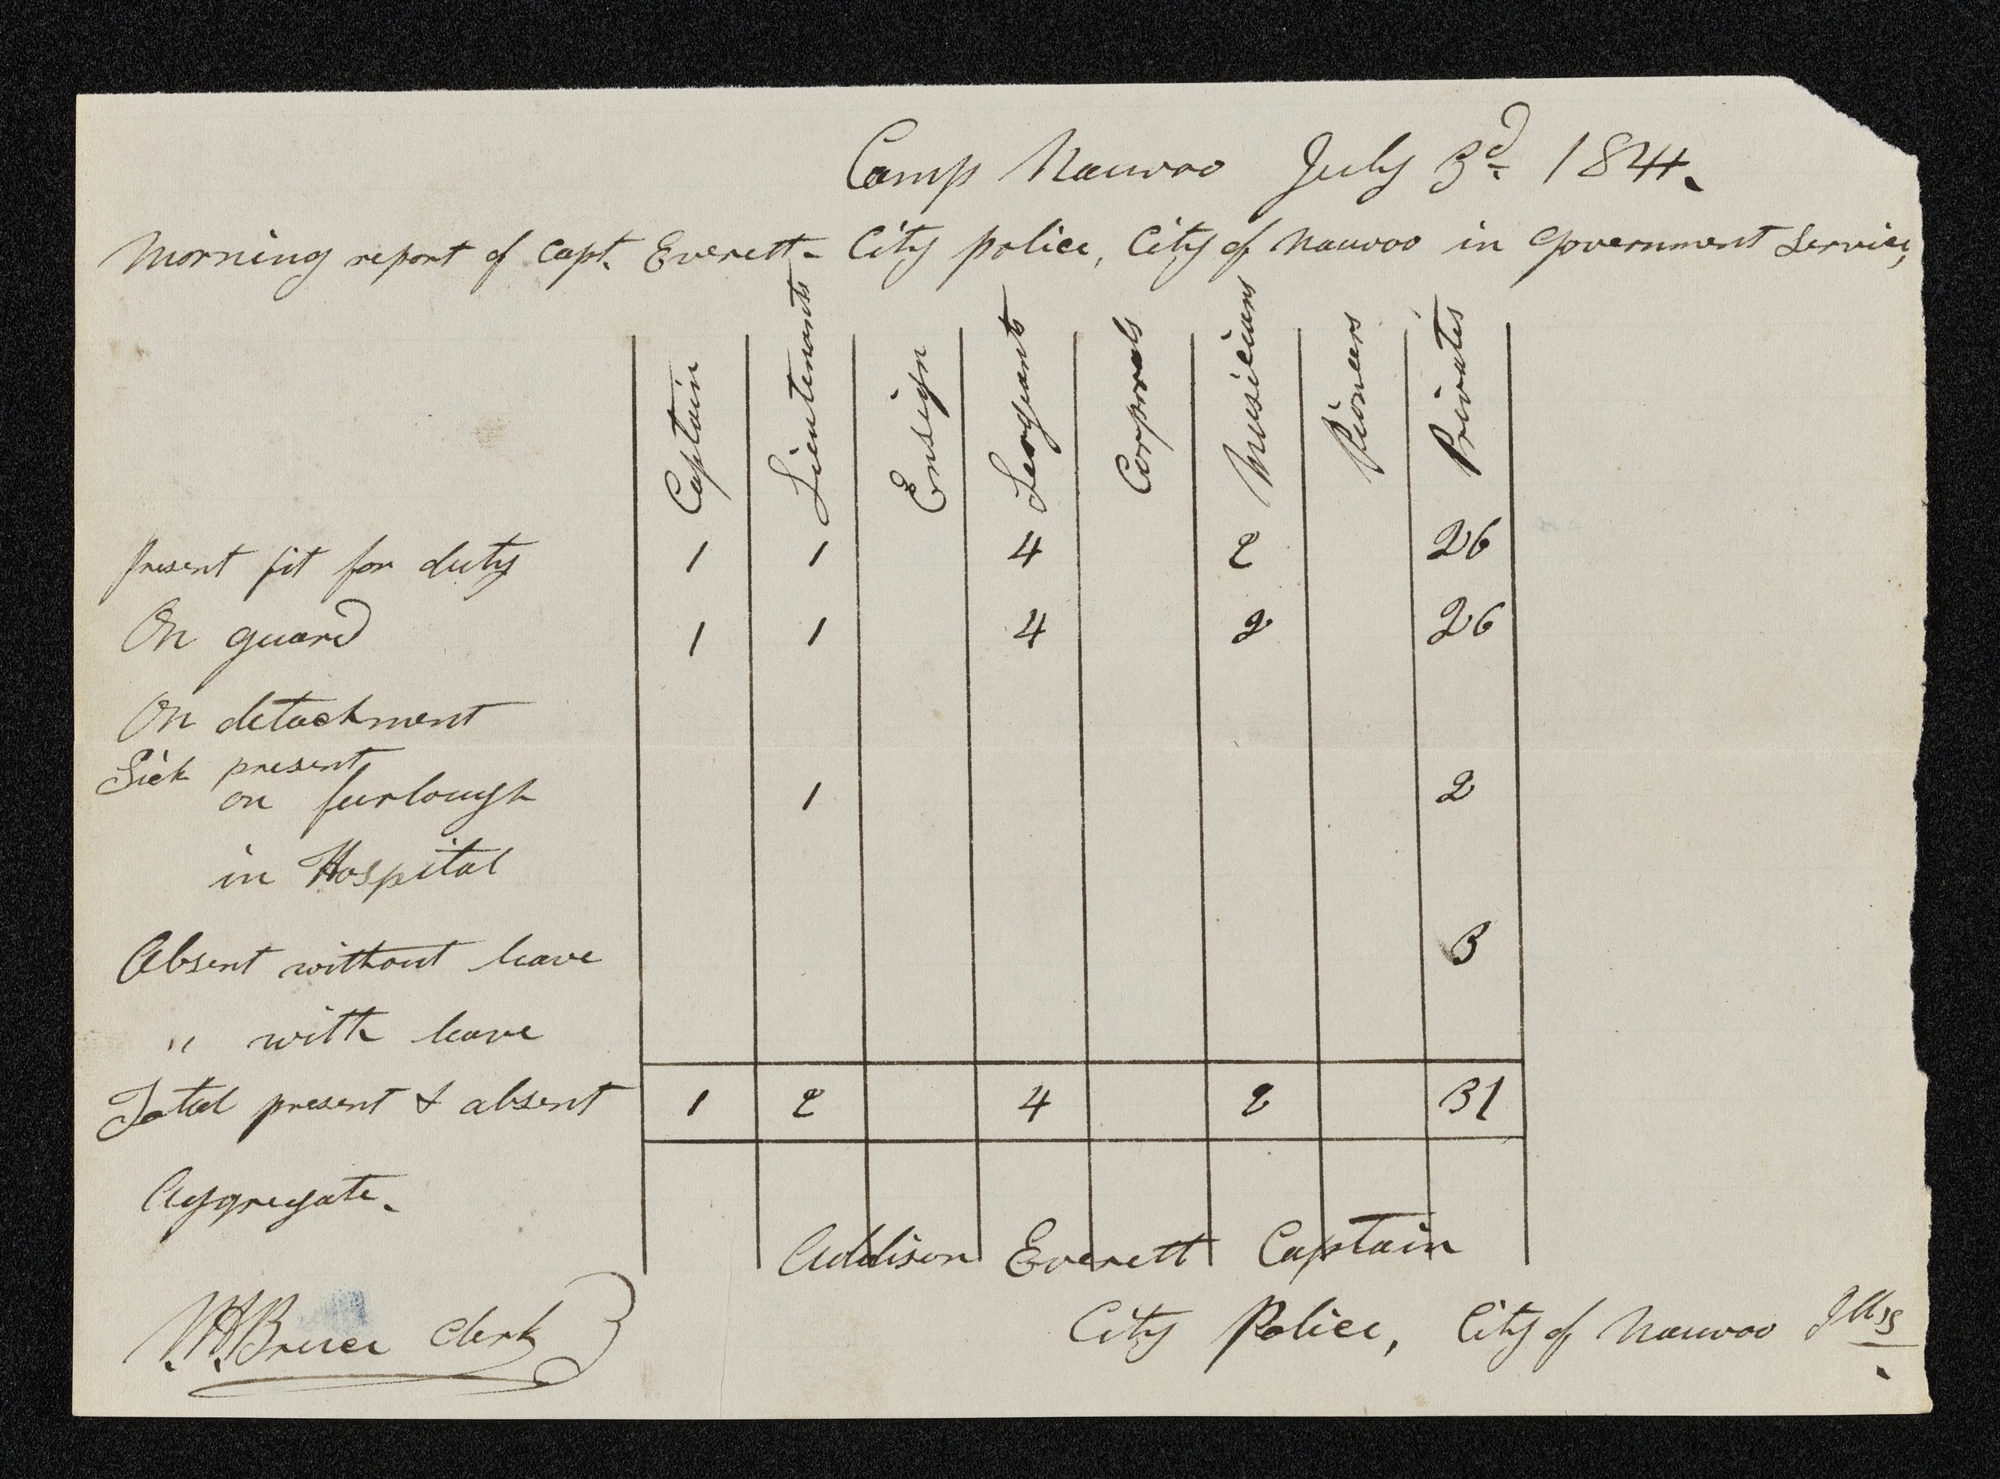 Camp Nauvoo July 3d 1844.
Morning report of Capt. Everett - City police, City of Nauvoo in Government Service,
Captain Lieutenants Ensign Sergeants Corporals Musicians Pioneers Privates
Present fit for duty 1 1 4 2 26
On guard 1 1 4 2 26
On detachment
Sick present
on furlough 1 2
in Hospital
Absent without leave 3
" with leave
Total present & absent 1 2 4 2 31
Aggregate.
Addison Everett Captain
City Police, City of Nauvoo Ills
Bruce Clerk